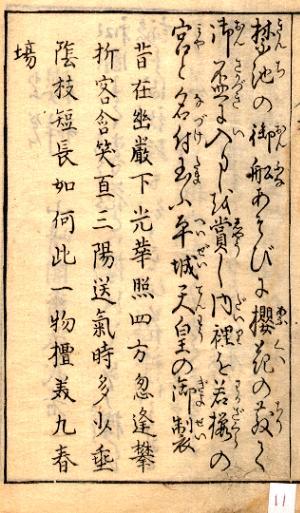 禁池の御船あそびに櫻花の散て
御盃に入りしを賞し内裡を若櫻の
宮と名付玉ふ平城天皇の御製
昔在幽巖下光華照四方忽逢攀
折客含笑亘三陽送氣時多少垂
陰枝短長如何此一物擅美九春
場
11